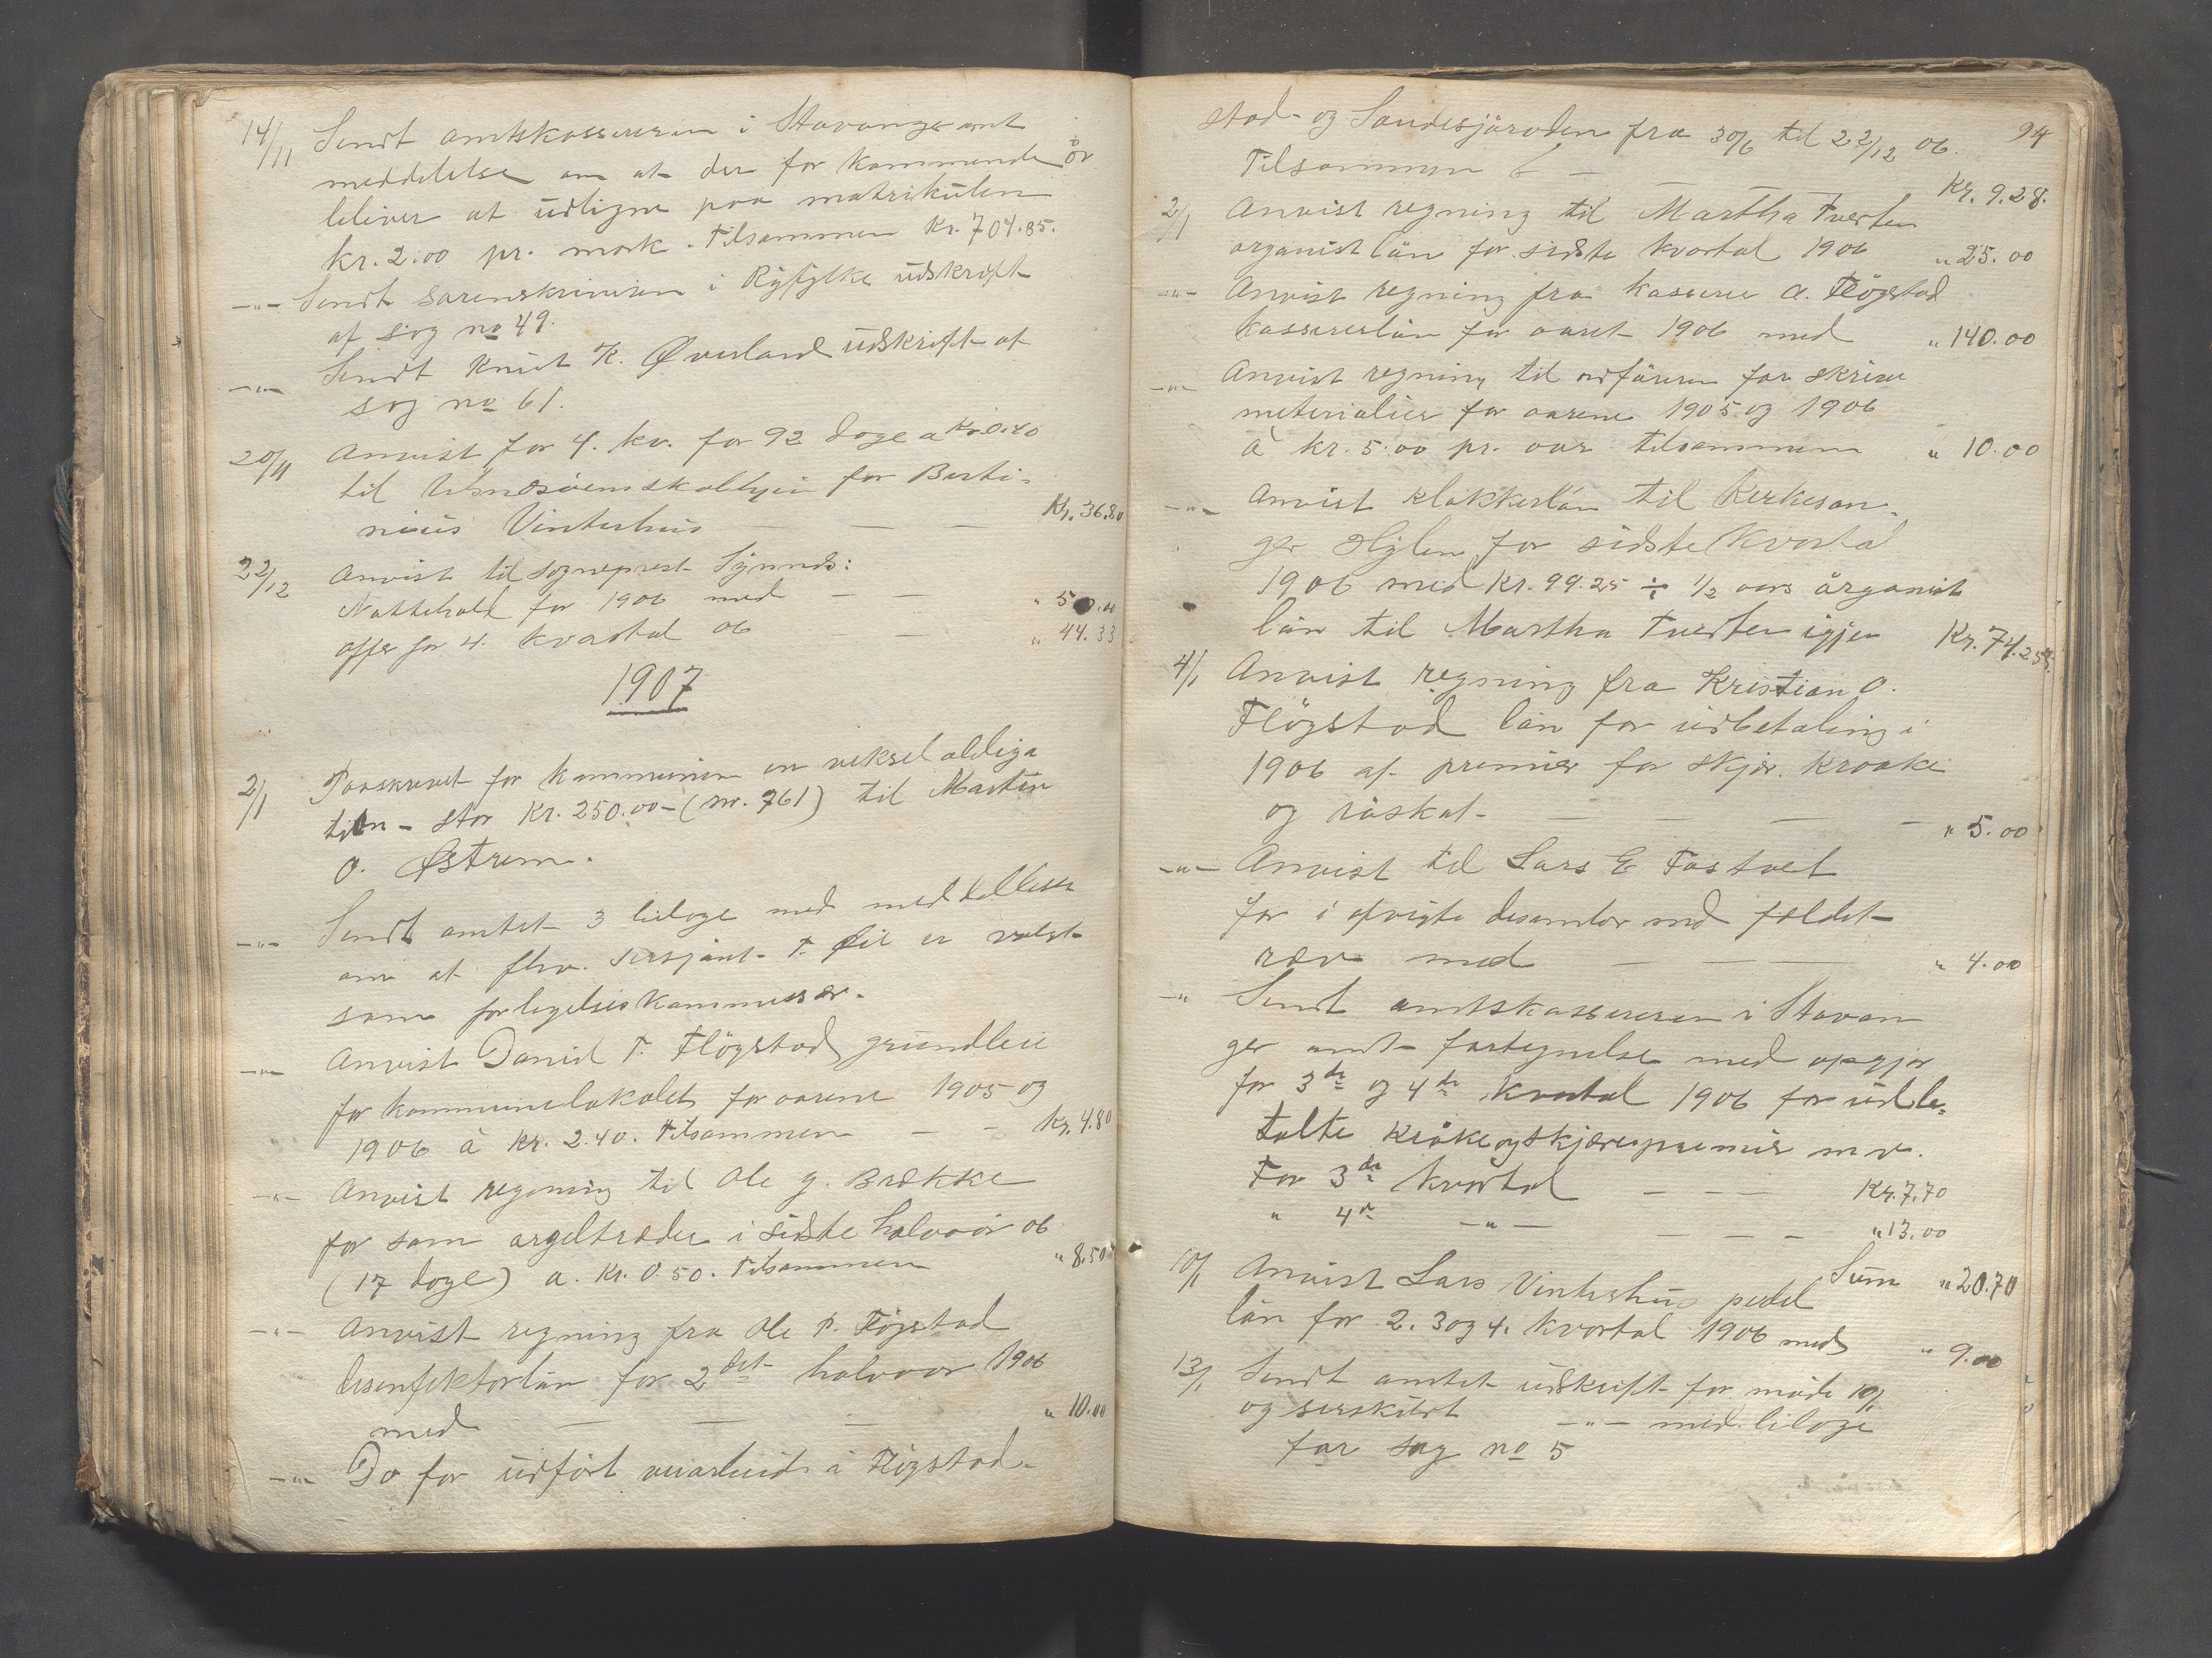 14/11 Sendt amtskassereren i Stavanger amt
meddelelse om at der for kommende år
bliver at udligne paa matrikulen
kr. 2.00 pr. mark. Tilsammen Kr. 704.85.
-"- Sendt sorenskriveren i Ryfylke udskrift
af sag no 49.
-"- Sendt Knut K. Øverland udskrift af
sag no 61.
20/11 Anvist for 4. kv. for 92 dage a Kr 0.40
til for Berti-
nius Vinterhus — — — Kr. 36.80
22/12 Anvist til sogneprest Synnds:
Nattehold for 1906 med — — " 50.00
offer for 4. kvartal 06 — " 44.33
1907
2/1 Paaskrevet for kommunen en veksel obliga
tion - stor Kr. 250.00 - (nr. 761) til Martin
O. Østrem.
-"- Sendt amtet 3 bilage med meddellelse
om at fhv. sersjant T. er valgt
som forligelseskommissær.
-"- Anvist Daniel T. Fløgstad grundleie
for kommunelokalet for aarene 1905 og
1906 à Kr. 2.40. Tilsammen — - Kr. 4.80
-"- Anvist regning til Ole G. Brække
for som orgeltræder i sidste halvaar 06
(17 dage) a. Kr. 0.50. Tilsammen " 8.50
-"- Anvist regning fra Ole P. Fløgstad
desenfektørløn for 2det halvaar 1906
med — — — " 10.00
-"- Do for udført veiarbeide i Fløgstad-
94
stad- og Sandesjåroden fra 30/6 til 22/12 06.
Tilsammen — Kr. 9.28.
2/1 Anvist regning til Martha Tverten
organistløn for sidste kvartal 1906 " 25.00
-"- Anvist regning fra kasserer A. Fløgstad
kassererløn for aaret 1906 med " 140.00
-"- Anvist regning til ordføreren for skrive
materialier for aarene 1905 og 1906
à kr. 5.00 pr. aar tilsammen " 10.00
-"- Anvist klokkerløn til Kirkesan-
ger Hylen for sidste kvartal
1906 med Kr. 99.25 ÷ 1/2 aars organist
løn til Martha Tverten igjen Kr. 74.25
4/1 Anvist regning fra Kristian O.
Fløgstad løn for udbetaling i
1906 af premier for skjør. kraake
og røskat - — — — — " 5.00
-"- Anvist til Lars E Fastvet
for i afvigte desember md fældet
ræv med — — — " 4.00
-" Sendt amtskassereren i Stavan
ger amt fortegnelse med opgjør
for 3de og 4de kvartal 1906 for udbe-
talte kråke og skjærepremier m v.
For 3de kvartal — — — Kr. 7.70
" 4de -"- — — — " 13.00
Sum " 20.70
10/1 Anvist Lars Vinterhus pedel
løn for 2. 3 og 4. kvartal 1906 med " 9.00
13/1 Sendt amtet udskrift for møde 10/1
og serskilt -"- med bilage
for sag no 5